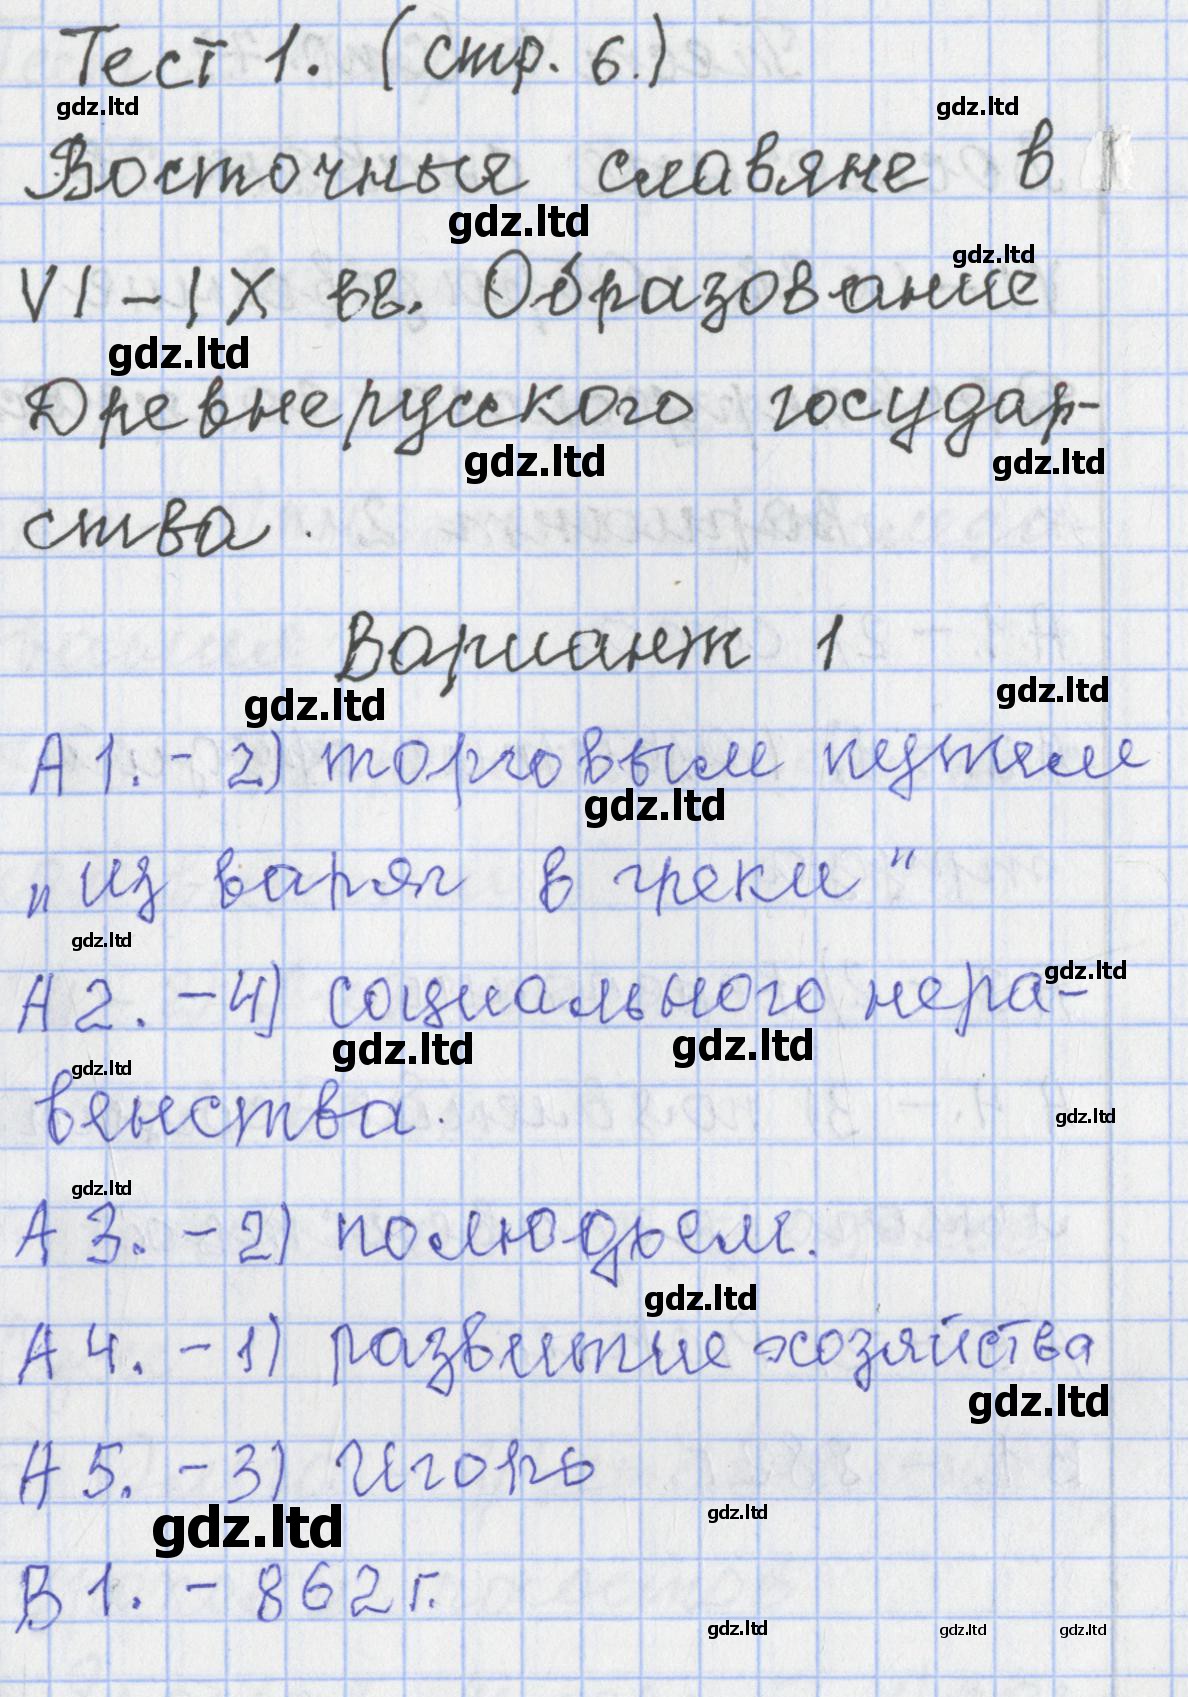 Тест 1. (стр. 6.)
gdz.ltd gdz.ltd
Восточные славяне в
gdz.ltd
gdz.ltd
VI – IX вв. Образование
gdz.ltd
Древнерусского государ-
gdz.ltd gdz.ltd
ства.
Вариант 1
gdz.ltd gdz.ltd
А 1. – 2) торговым путем
gdz.ltd
„из варяг в греки"
gdz.ltd
gdz.ltd
А 2. – 4) социального нера-
gdz.ltd gdz.ltd
gdz.ltd
венства.
gdz.ltd
gdz.ltd
А 3. – 2) полюдьем.
gdz.ltd
А 4. – 1) развитие хозяйства
gdz.ltd
А 5. – 3) Игорь
gdz.ltd gdz.ltd
В 1. – 862 г.
gdz.ltd gdz.ltd gdz.ltd